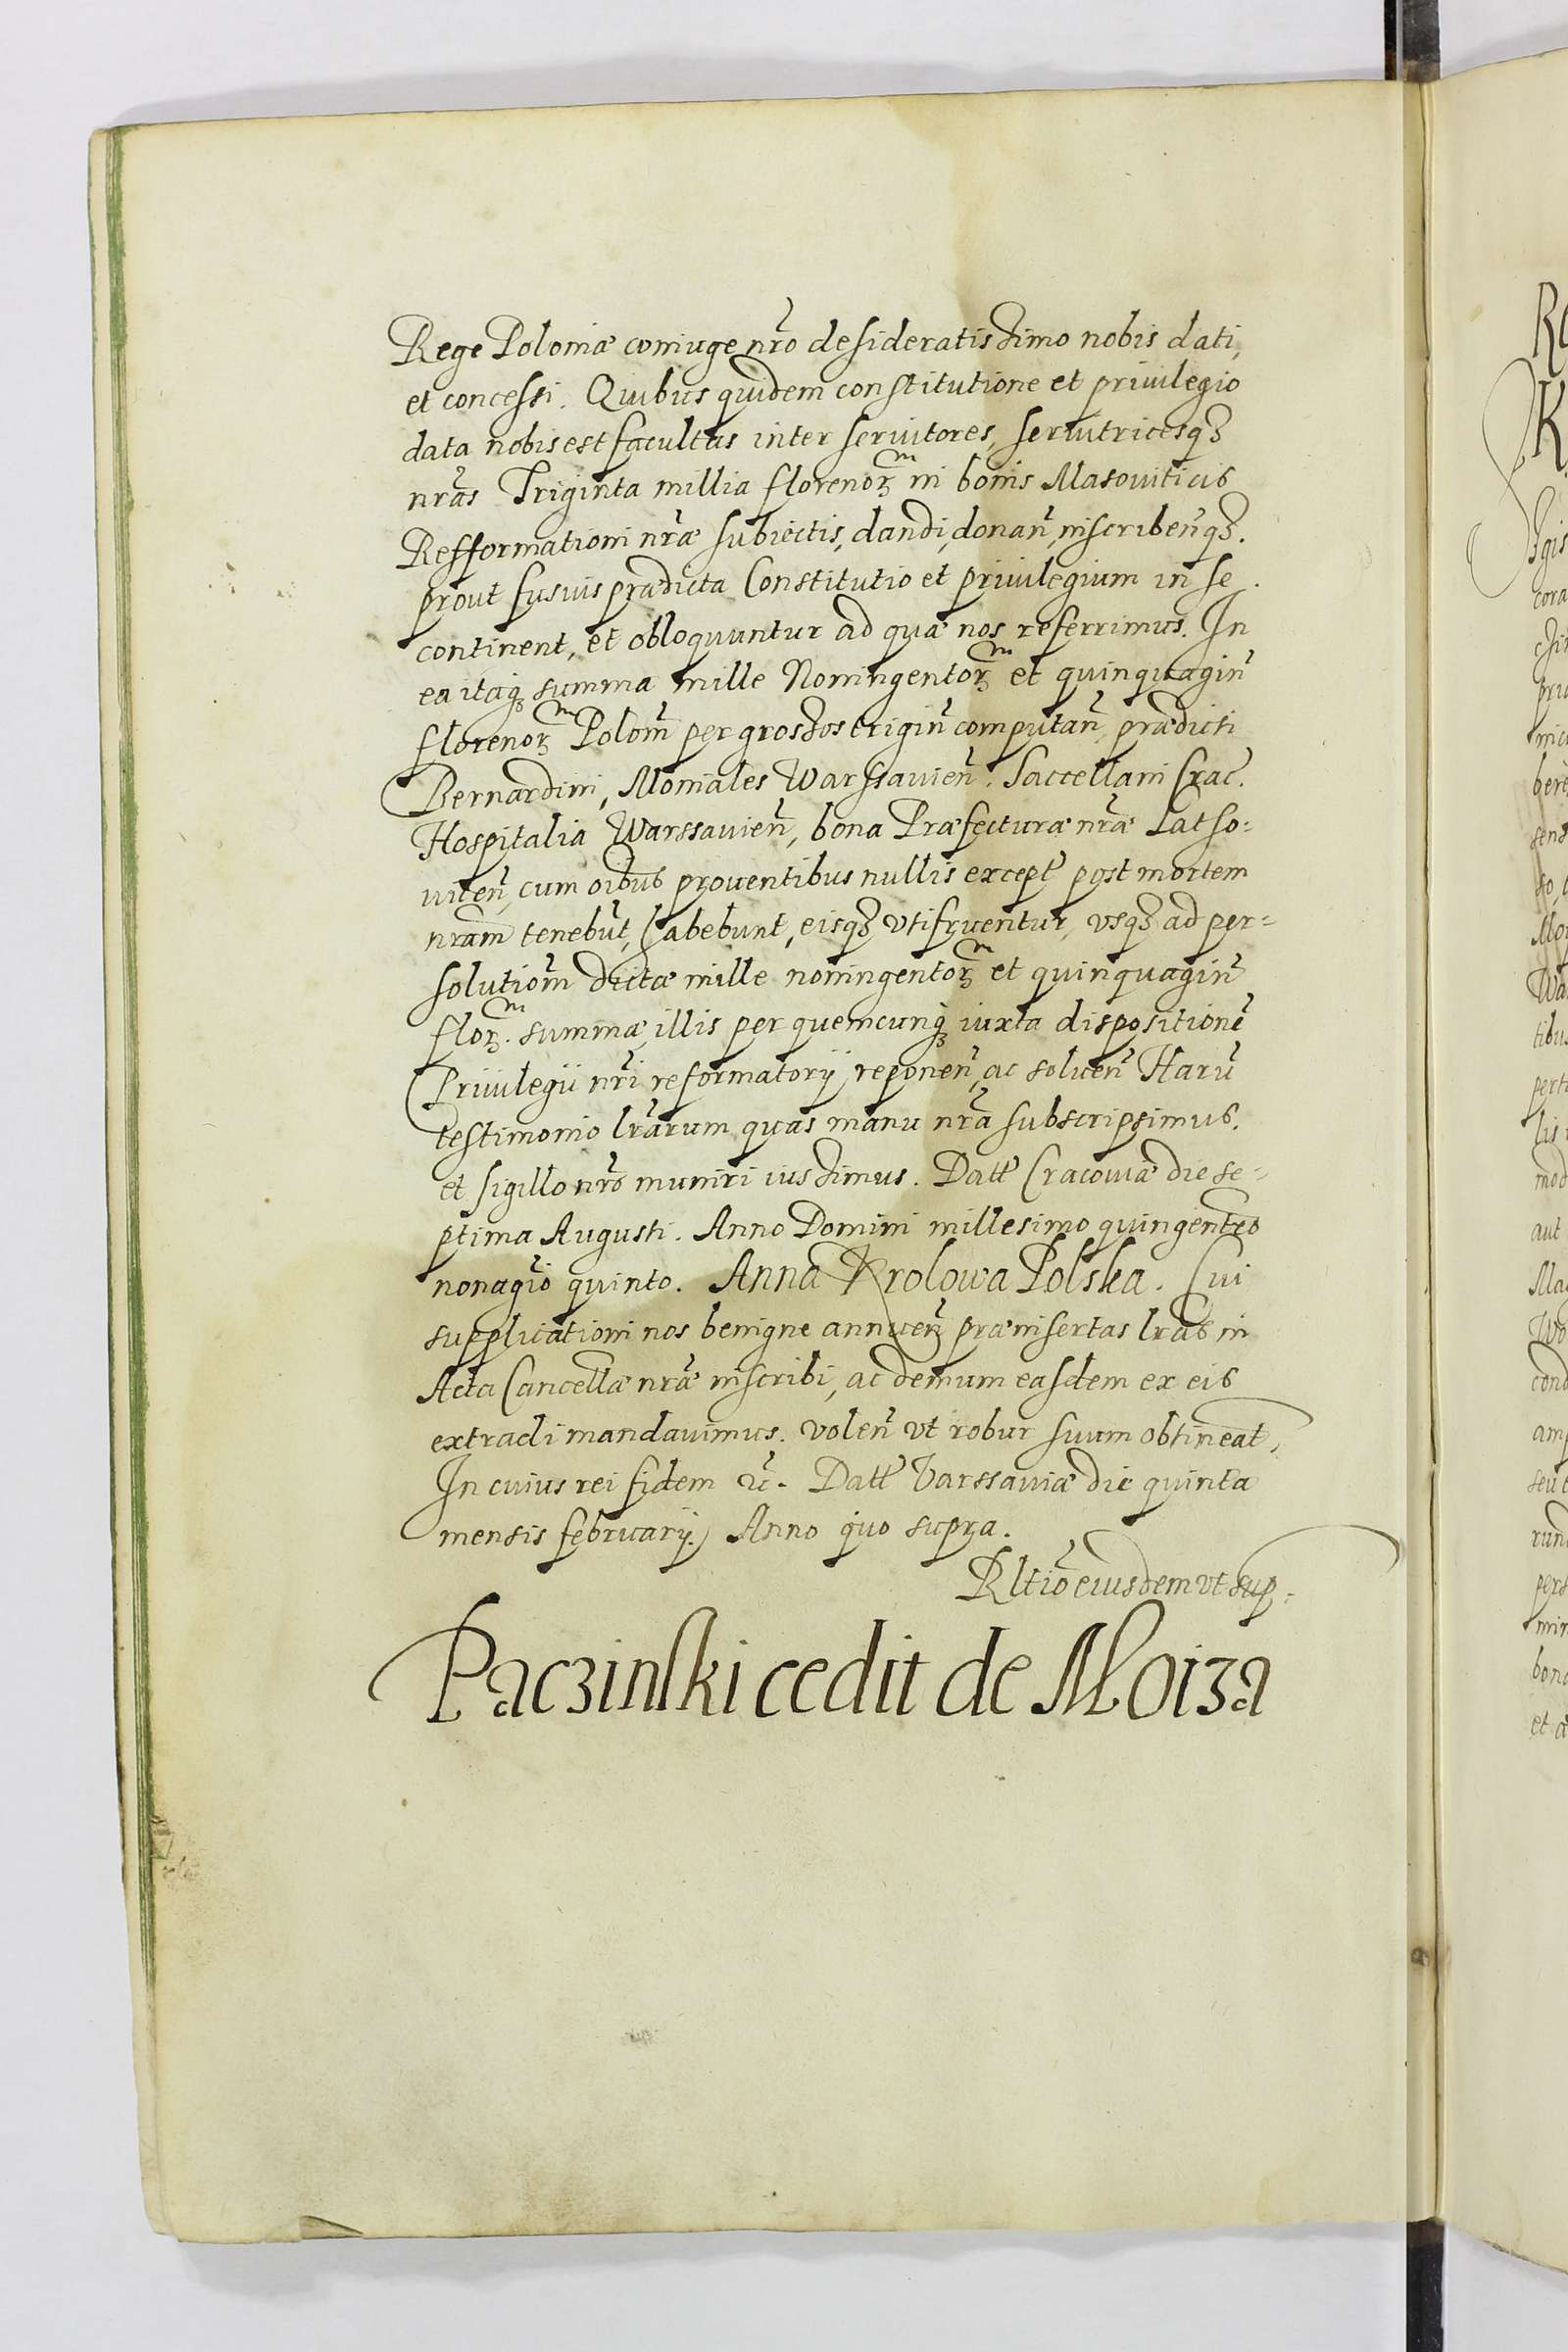 Rege Poloniæ coniuge nr̃o desideratissimo nobis dati,
et concessi. Quibus quidem constitutione et priuilegio
data nobis est facultas inter seruitores, seruitricesqꝫ
nr̃as Triginta millia florenorꝫᵐ in bonis Masouiticis
Refformationi nr̃æ subiectis, dandi, donan̄, inscriben̄qꝫ.
prout fusius prædicta Constitutio et priuilegium in se
continent, et obloquuntur ad quæ nos referrimus. In
ea itaqꝫ summa mille Noningentorꝫᵐ et quinquagin̄
florenorꝫᵐ Polon̄ per grossos trigin̄ computan̄, prædicti
Bernardini, Moniales Warssauien̄. Saccellani Crac̄.
Hospitalia Warssauien̄, bona Præfecturæ nr̃æ Latso-
uicen̄, cum oībus prouentibus nullis except̄ post mortem
nr̃am tenebūt, habebunt, eisqꝫ vtifruentur, vsqꝫ ad per-
solutiōm dictæ mille noningentorꝫᵐ et quinquagin̄
florꝫᵐ. summæ, illis per quemcunqꝫ iuxta dispositionē
Priuilegii nr̃i reformatorij reponen̄, ac soluen̄ Harū
testimonio lr̃arum quas manu nr̃a subscripsimus.
et sigillo nr̃o muniri iussimus. Datt̄ Cracouiæ die se-
ptima Augusti. Anno Domini millesimo quingentēo
nonagīo quinto. Anna Krolowa Polska. Cui
supplicationi nos benigne annuen̄ præinsertas lr̃as in
Acta Cancellæ nr̃æ inscribi, ac demum easdem ex eis
extradi mandauimus. volen̄ vt robur suum obtineat,
In cuius rei fidem etc̄. Datt̄ Varssauiæ die quinta
mensis februarij. Anno quo supra.
Rltiō eiusdem vt sup-
Paczinski cedit de Moiza